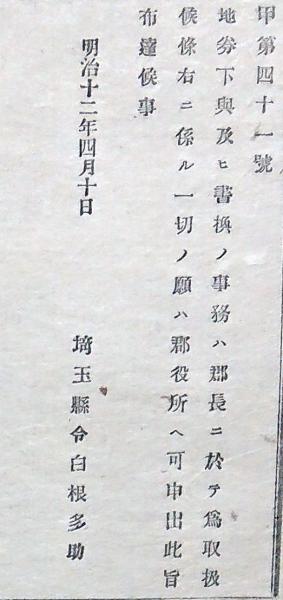 甲第四十一號
地券下與及ヒ書換ノ事務ハ郡長ニ於テ爲取扱
候條右ニ係ル一切ノ願ハ郡役所ヘ可申出此旨
布達候事
明治十二年四月十日
埼玉縣令白根多助